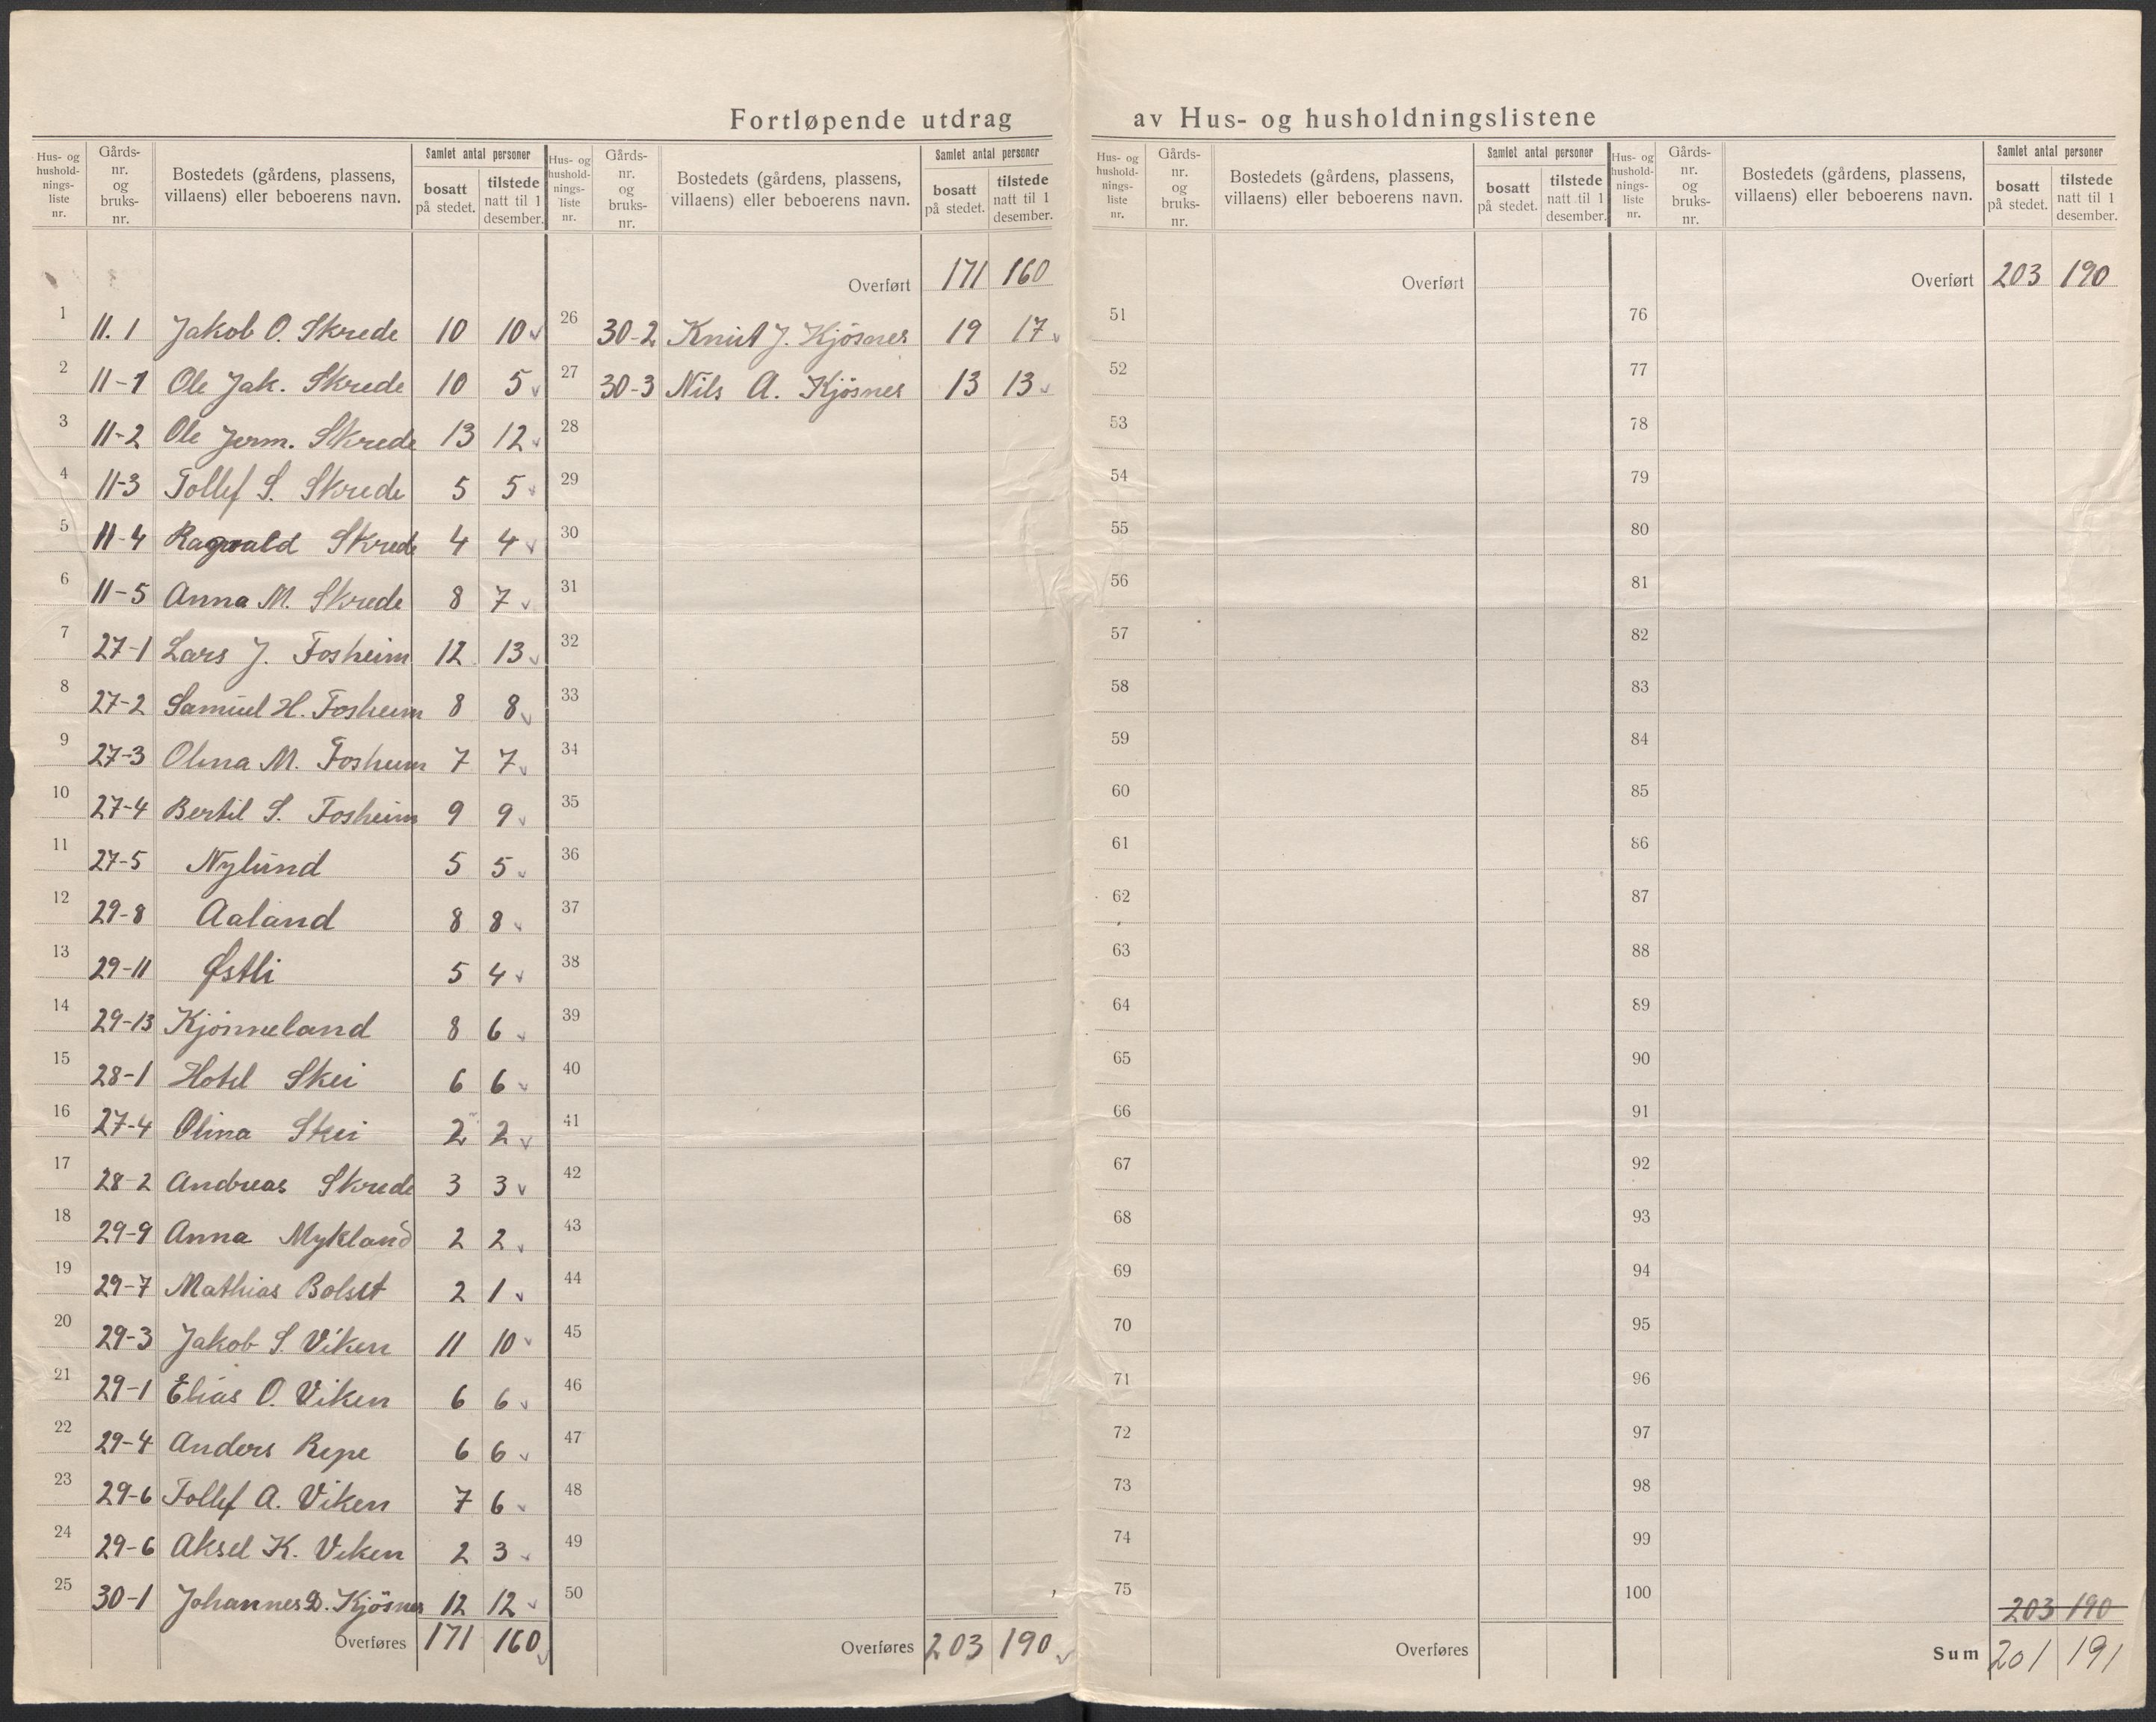 Fortløpende utdrag av Hus- og husholdningslistene
Hus- og hushold-nings-liste nr. | Gårds-nr. og bruks-nr. | Bostedets (gårdens, plassens, villaens) eller beboerens navn. | Samlet antal personer | bosatt på stedet. | tilstede natt til 1 desember.
1 11.1 Jakob O. Skrede 10 10
2 11-1 Ole Jak. Skrede 10 5
3 11-2 Ole Jerm. Skrede 13 12
4 11-3 Tollef S. Skrede 5 5
5 11-4 Ragnvald Skrede 4 4
6 11-5 Anna M. Skrede 8 7
7 27-1 Lars J. Fosheim 12 13
8 27-2 Samuel H. Fosheim 8 8
9 27-3 Olina M. Fosheim 7 7
10 27-4 Bertil S. Fosheim 9 9
11 27-5 Nylund 5 5
12 29-8 Aaland 8 8
13 29-11 Østli 5 4
14 29-13 Kjønneland 8 6
15 28-1 Hotel Skei 6 6
16 27-4 Olina Skei 2 2
17 28-2 Andreas Skrede 3 3
18 29-9 Anna Mykland 2 2
19 29-7 Mathias Bolset 2 1
20 29-3 Jakob S. Viken 11 10
21 29-1 Elias O. Viken 6 6
22 29-4 Anders Repe 6 6
23 29-6 Tollef A. Viken 7 6
24 29-6 Aksel K. Viken 2 3
25 30-1 Johannes D. Kjösnes 12 12
Overføres 171 160
Hus- og hushold-nings-liste nr. | Gårds-nr. og bruks-nr. | Bostedets (gårdens, plassens, villaens) eller beboerens navn. | Samlet antal personer | bosatt på stedet. | tilstede natt til 1 desember.
Overført 171 160
26 30-2 Knut J. Kjösnes 19 17
27 30-3 Nils A. Kjösnes 13 13
28
29
30
31
32
33
34
35
36
37
38
39
40
41
42
43
44
45
46
47
48
49
50
Overføres 203 190
Hus- og hushold-nings-liste nr. | Gårds-nr. og bruks-nr. | Bostedets (gårdens, plassens, villaens) eller beboerens navn. | Samlet antal personer | bosatt på stedet. | tilstede natt til 1 desember.
Overført
51
52
53
54
55
56
57
58
59
60
61
62
63
64
65
66
67
68
69
70
71
72
73
74
75
Overføres
Hus- og hushold-nings-liste nr. | Gårds-nr. og bruks-nr. | Bostedets (gårdens, plassens, villaens) eller beboerens navn. | Samlet antal personer | bosatt på stedet. | tilstede natt til 1 desember.
Overført 203 190
76
77
78
79
80
81
82
83
84
85
86
87
88
89
90
91
92
93
94
95
96
97
98
99
100
203 190
Sum 201 191